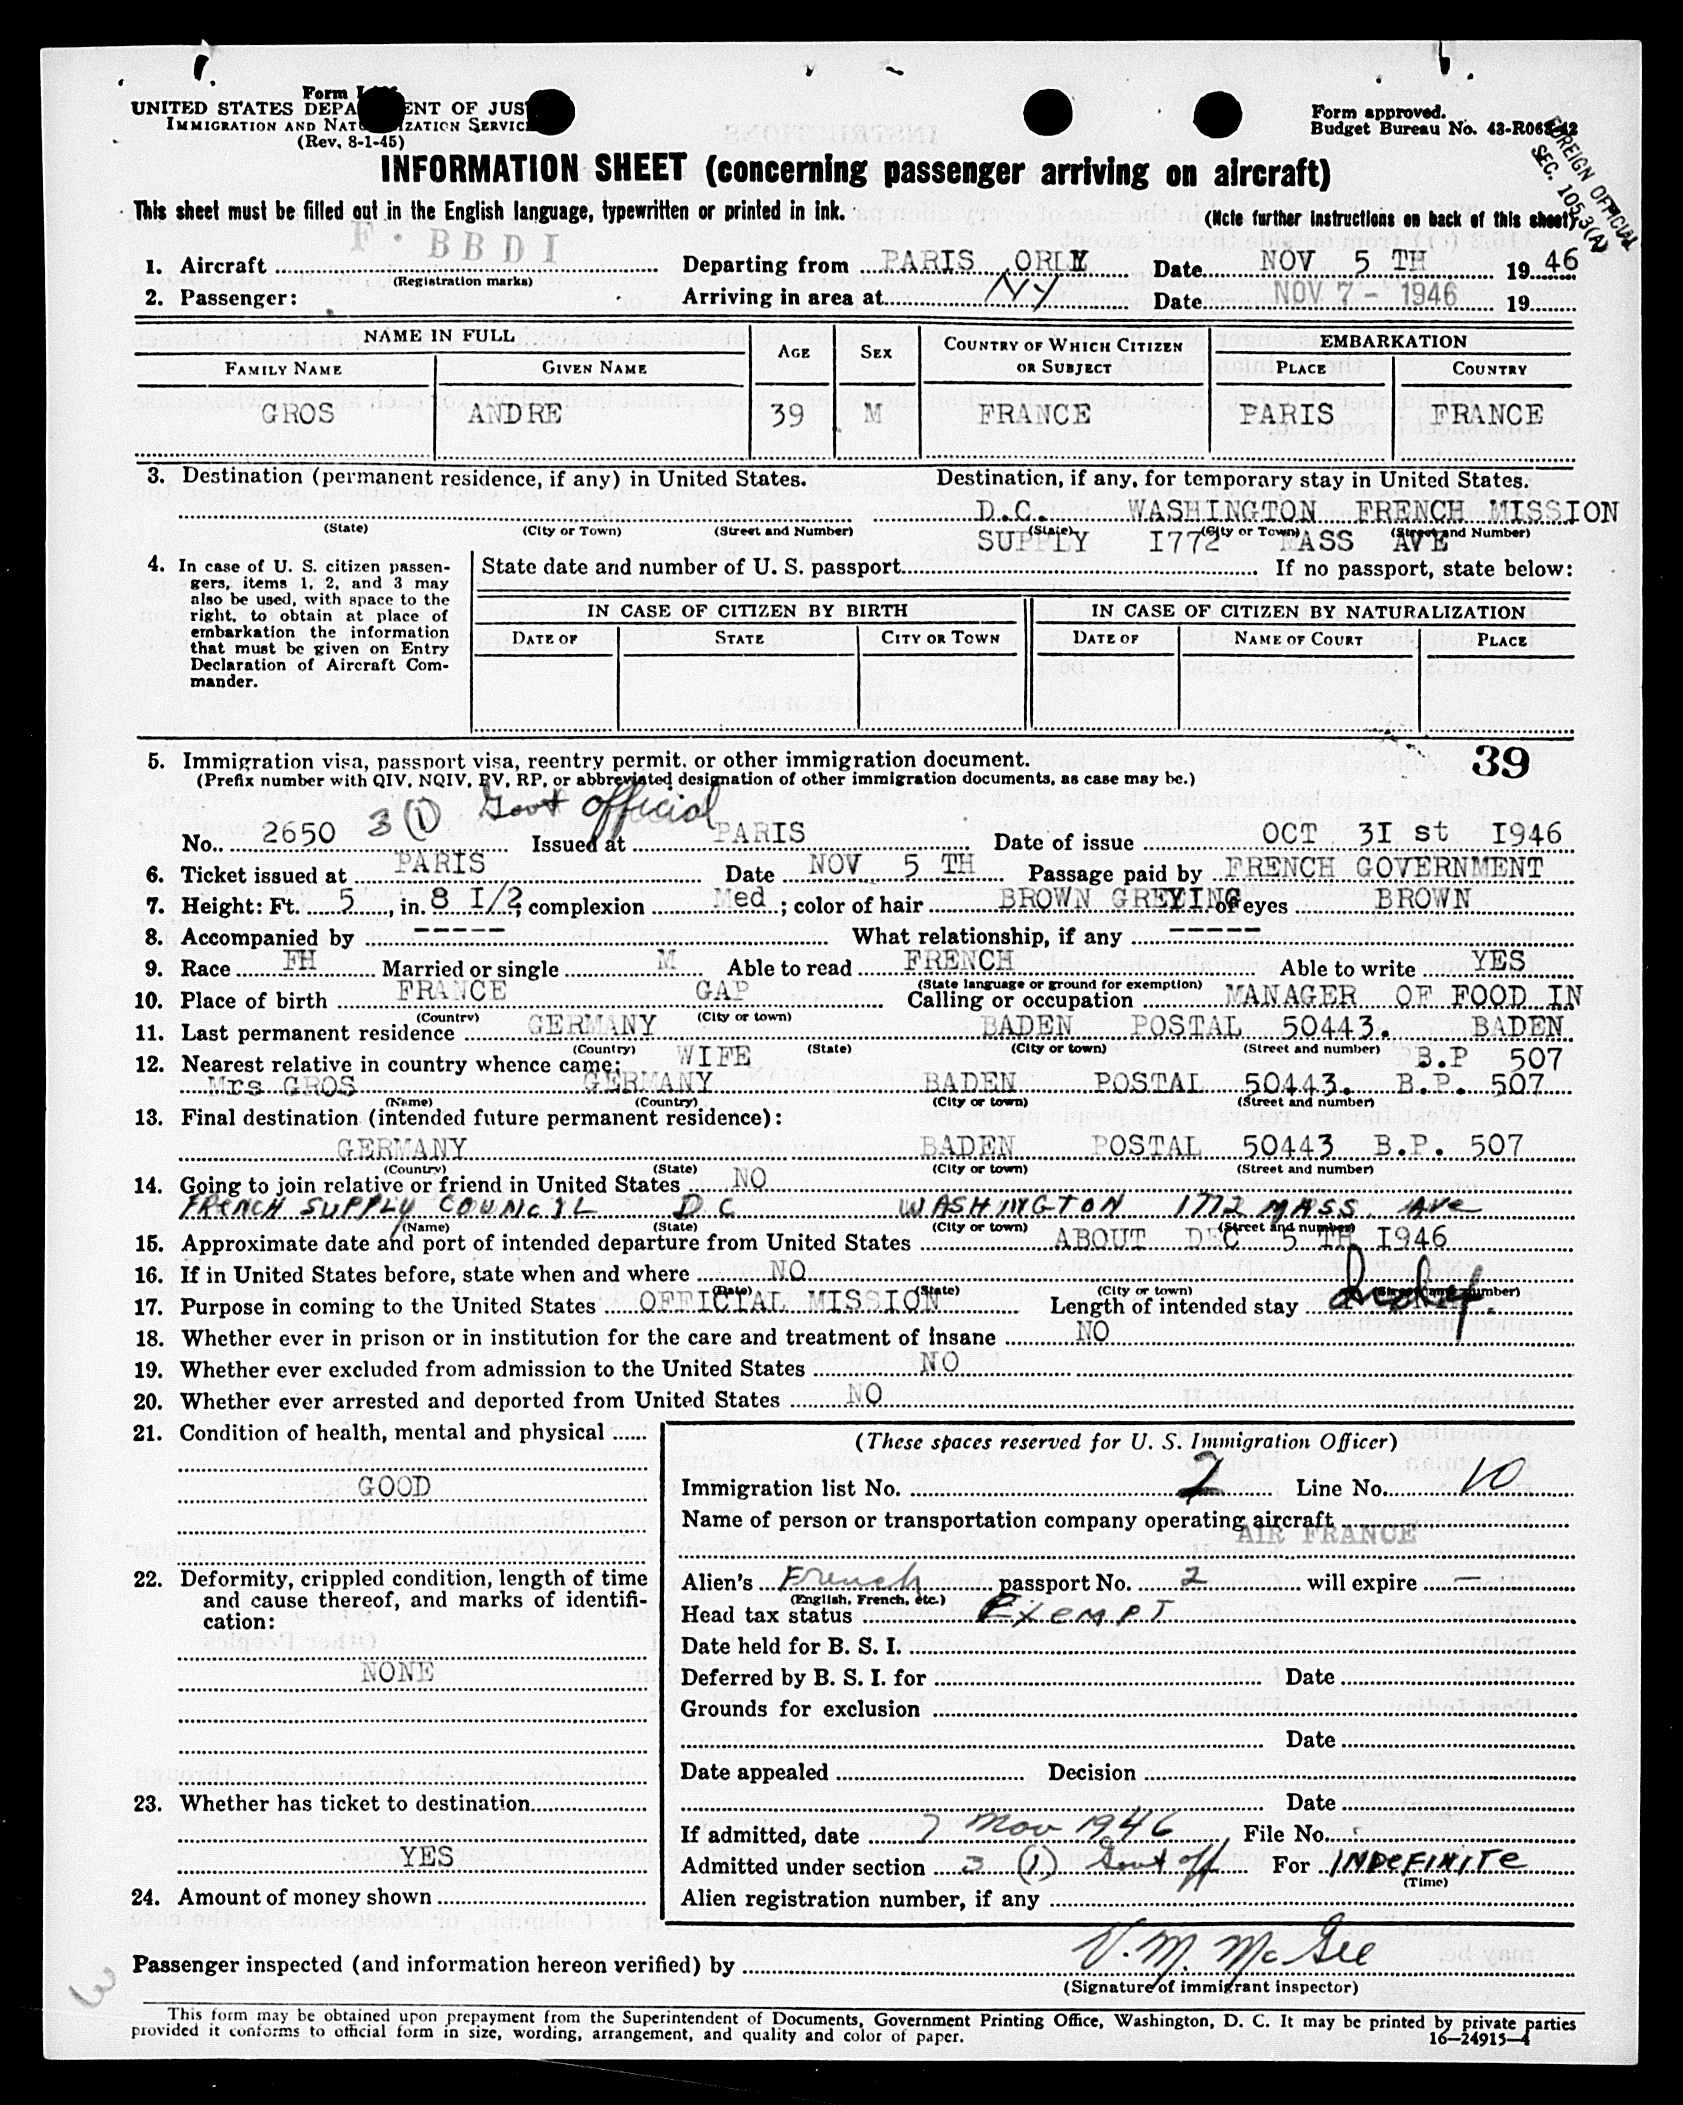 Form I-466
UNITED STATES DEPARTMENT OF JUSTICE
IMMIGRATION AND NATURALIZATION SERVICE
(Rev. 8-1-45)
Form approved.
Budget Bureau No. 43-R063-42
FOREIGN OFFICIAL
SEC. 105.3(A)
INFORMATION SHEET (concerning passenger arriving on aircraft)
This sheet must be filled out in the English language, typewritten or printed in ink.
(Note further instructions on back of this sheet)
1. Aircraft F. BBDI Departing from PARIS ORLY Date NOV 5 TH 19 46
(Registration marks)
2. Passenger: Arriving in area at NY Date NOV 7 - 1946 19
NAME IN FULL AGE SEX COUNTRY OF WHICH CITIZEN OR SUBJECT EMBARKATION
FAMILY NAME GIVEN NAME PLACE COUNTRY
GROS ANDRE 39 M FRANCE PARIS FRANCE
3. Destination (permanent residence, if any) in United States. Destination, if any, for temporary stay in United States.
D.C. WASHINGTON FRENCH MISSION
(State) (City or Town) (Street and Number) (State) (City or Town) (Street and Number)
SUPPLY I772 MASS AVE
4. In case of U. S. citizen passen-
gers, items 1, 2, and 3 may
also be used, with space to the
right, to obtain at place of
embarkation the information
that must be given on Entry
Declaration of Aircraft Com-
mander.
State date and number of U. S. passport If no passport, state below:
IN CASE OF CITIZEN BY BIRTH IN CASE OF CITIZEN BY NATURALIZATION
DATE OF STATE CITY OR TOWN DATE OF NAME OF COURT PLACE
5. Immigration visa, passport visa, reentry permit, or other immigration document. 39
(Prefix number with QIV, NQIV, PV, RP, or abbreviated designation of other immigration documents, as case may be.)
No. 2650 3 (1) Govt official Issued at PARIS Date of issue OCT 3I st I946
6. Ticket issued at PARIS Date NOV 5 TH Passage paid by FRENCH GOVERNMENT
7. Height: Ft. 5, in. 8 I/2; complexion Med; color of hair BROWN GREYING of eyes BROWN
8. Accompanied by ----- What relationship, if any -----
9. Race FH Married or single M Able to read FRENCH Able to write YES
(State language or ground for exemption)
10. Place of birth FRANCE GAP Calling or occupation MANAGER OF FOOD IN
(Country) (City or town)
11. Last permanent residence GERMANY BADEN POSTAL 50443. BADEN
(Country) (State) (City or town) (Street and number) B.P 507
12. Nearest relative in country whence came: WIFE
Mrs GROS GERMANY BADEN POSTAL 50443. B.P. 507
(Name) (Country) (City or town) (Street and number)
13. Final destination (intended future permanent residence):
GERMANY BADEN POSTAL 50443 B.P. 507
(Country) (State) (City or town) (Street and number)
14. Going to join relative or friend in United States NO
FRENCH SUPPLY COUNCIL D C WASHINGTON 1772 MASS. AVE
(Name) (State) (City or town) (Street and number)
15. Approximate date and port of intended departure from United States ABOUT DEC 5 TH I946
16. If in United States before, state when and where NO
(Date) (State) (City or town) (Street and number)
17. Purpose in coming to the United States OFFICIAL MISSION Length of intended stay Indef.
18. Whether ever in prison or in institution for the care and treatment of insane NO
19. Whether ever excluded from admission to the United States NO
20. Whether ever arrested and deported from United States NO
21. Condition of health, mental and physical
GOOD
22. Deformity, crippled condition, length of time
and cause thereof, and marks of identifi-
cation:
NONE
23. Whether has ticket to destination
YES
24. Amount of money shown
(These spaces reserved for U. S. Immigration Officer)
Immigration list No. 2 Line No. 10
Name of person or transportation company operating aircraft
AIR FRANCE
Alien's French passport No. 2 will expire —
(English, French, etc.)
Head tax status Exempt
Date held for B. S. I.
Deferred by B. S. I. for Date
Grounds for exclusion
Date
Date appealed Decision
Date
If admitted, date 7 Nov 1946, File No.
Admitted under section 3 (1) Govt off For INDEFINITE
(Time)
Alien registration number, if any
Passenger inspected (and information hereon verified) by V. M. McGee
(Signature of immigrant inspector)
3
This form may be obtained upon prepayment from the Superintendent of Documents, Government Printing Office, Washington, D. C. It may be printed by private parties
provided it conforms to official form in size, wording, arrangement, and quality and color of paper.
16—24915-4